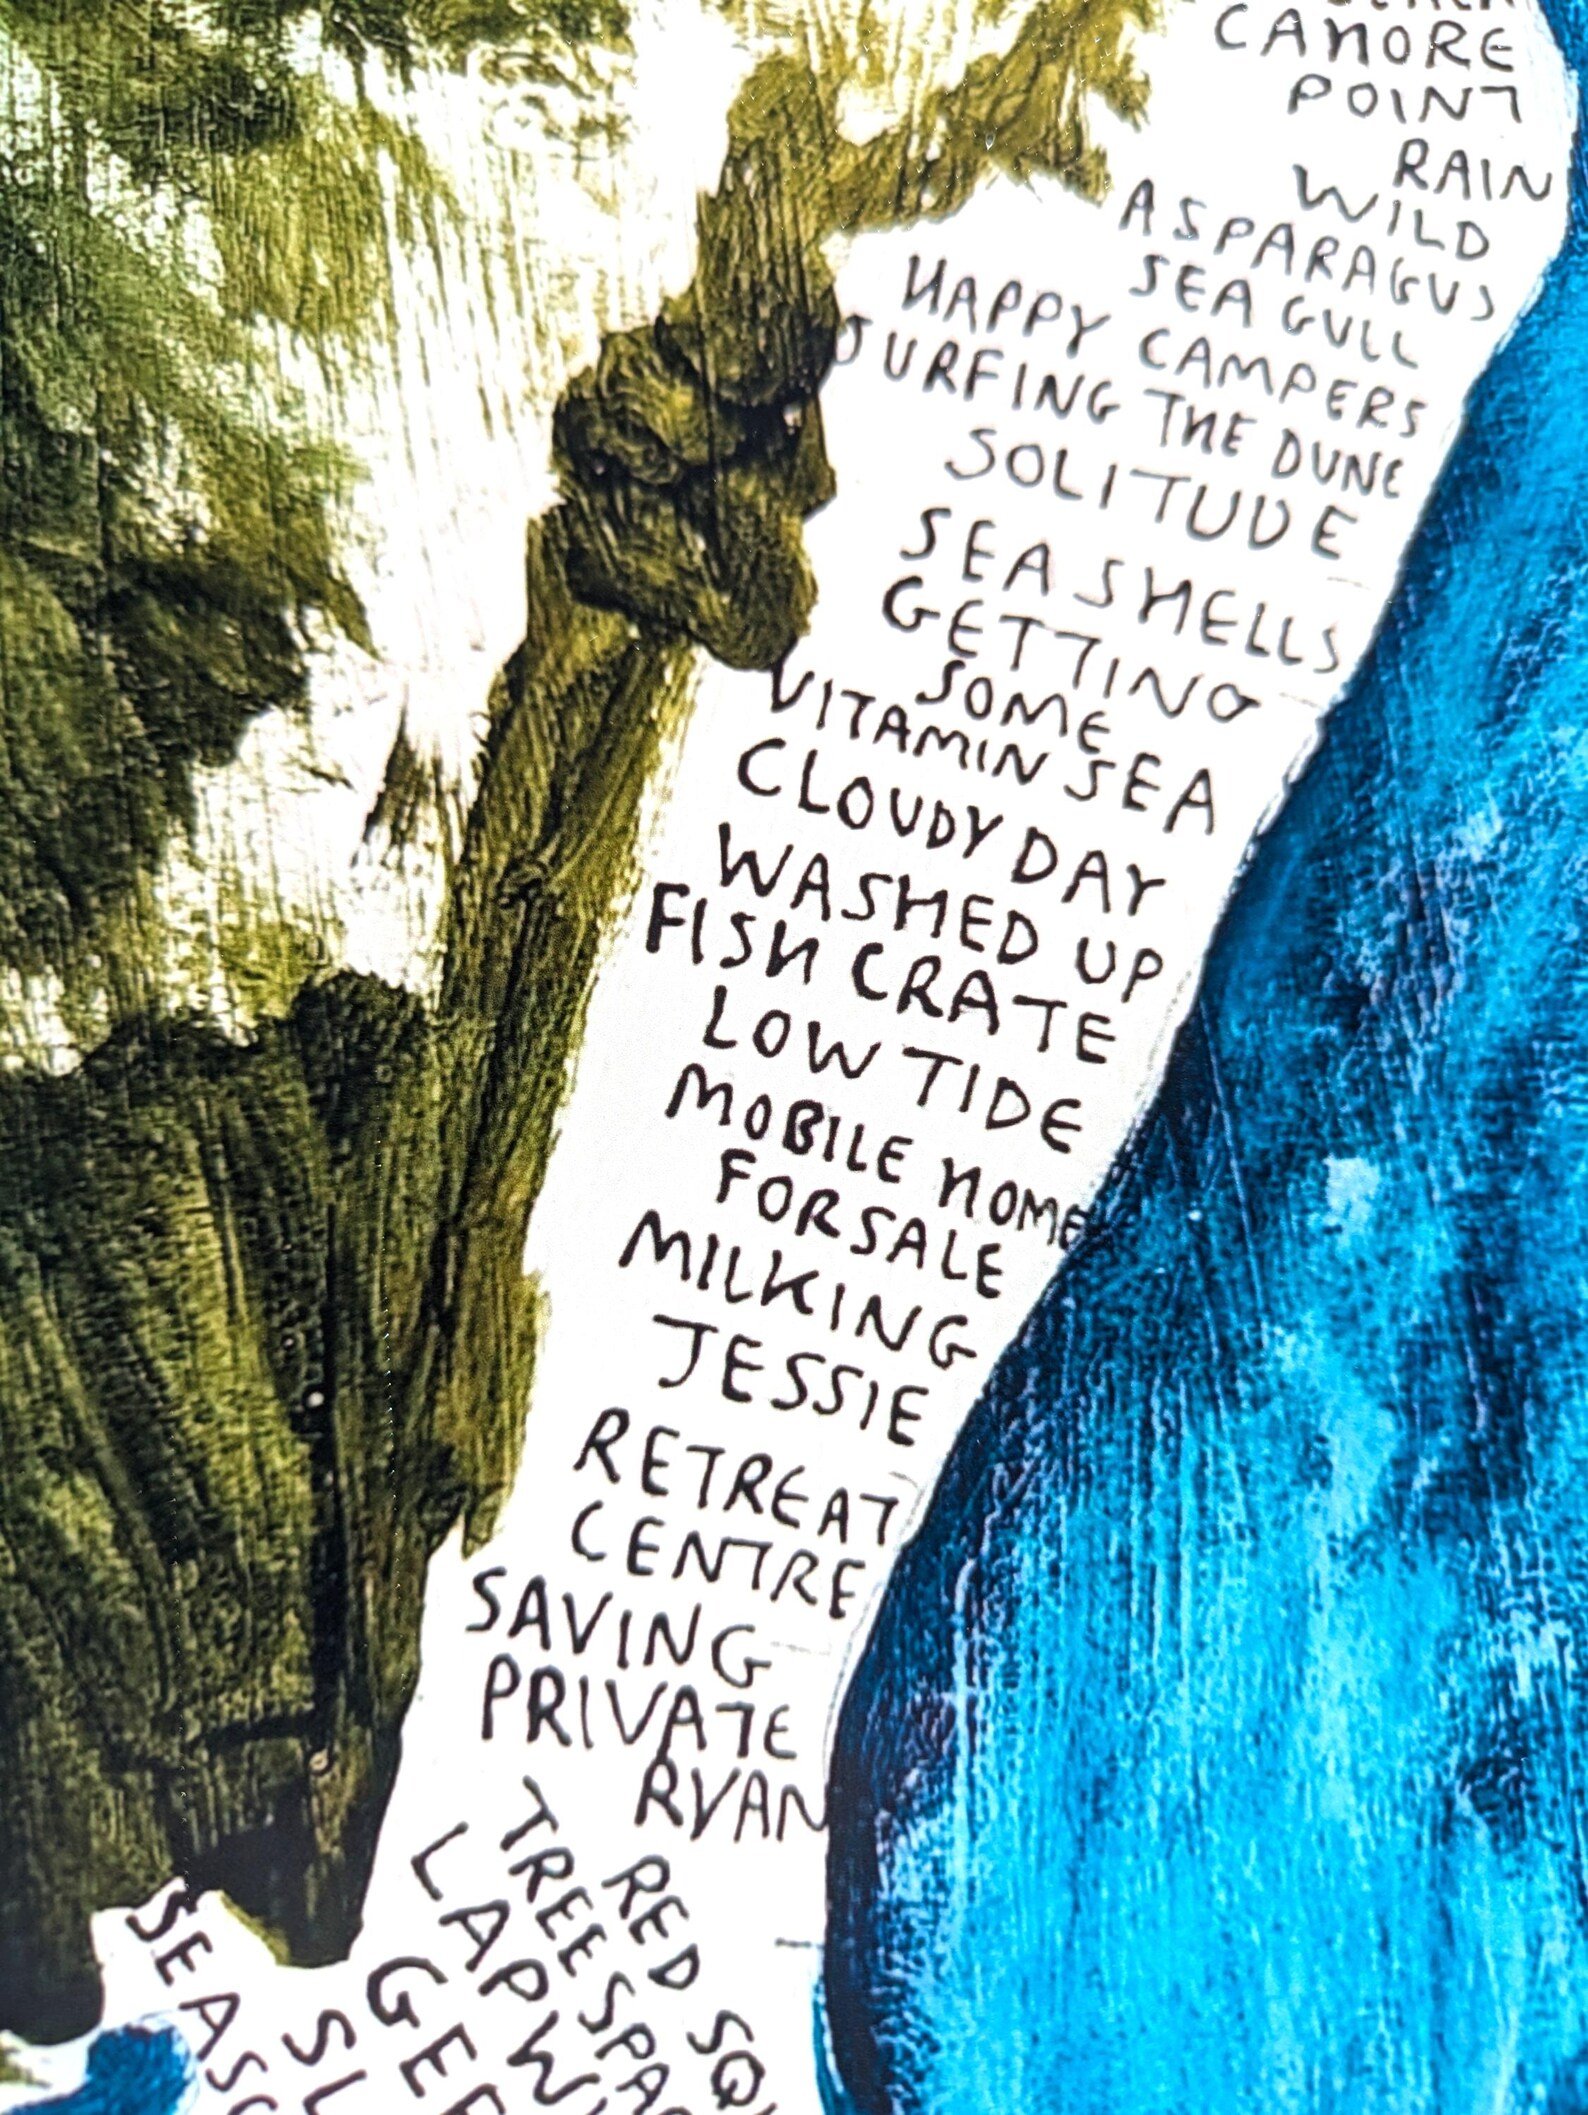 CAHORE
POINT
RAIN
WILD
ASPARAGUS
SEA GULL
HAPPY CAMPERS
SURFING THE DUNE
SOLITUDE
SEASHELLS
GETTING
SOME
VITAMIN SEA
CLOUDY DAY
WASHED UP
FISH CRATE
LOW TIDE
MOBILE HOME
FOR SALE
MILKING
JESSIE
RETREAT
CENTRE
SAVING
PRIVATE
RYAN
RED SQ
TREE SPA
LAPW
GEE
SL
SEASC